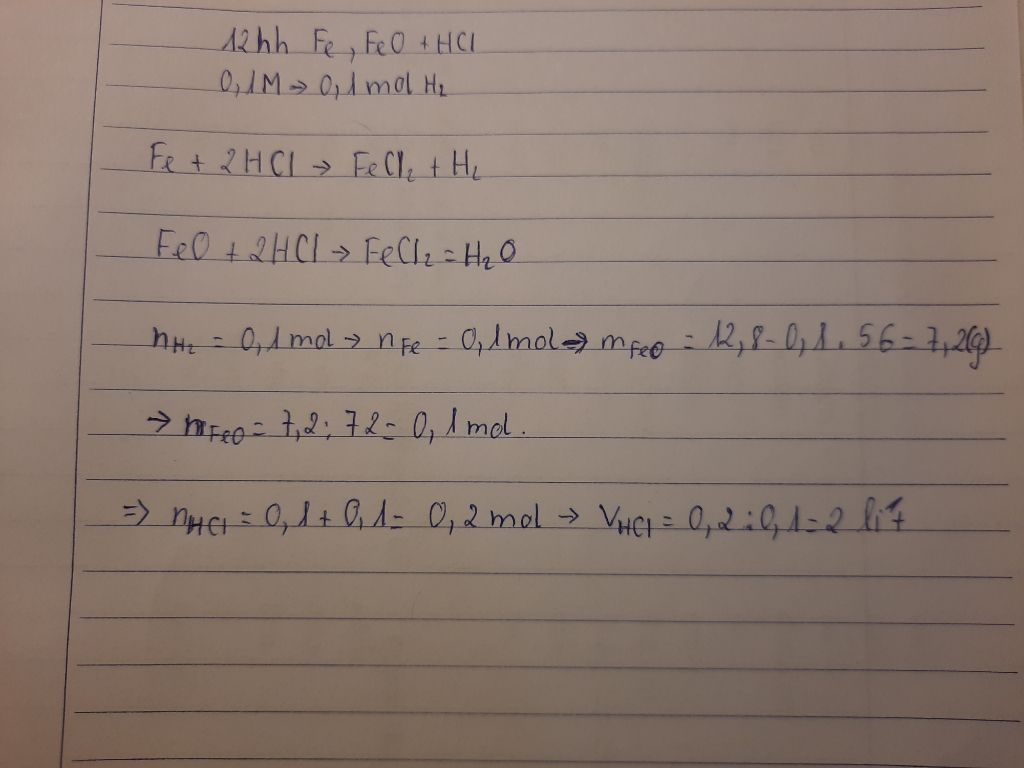 12hh Fe, FeO + HCl
0,1M → 0,1mol H₂
Fe + 2HCl → FeCl₂ + H₂
FeO + 2HCl → FeCl₂ = H₂O
nH₂ = 0,1mol → nFe = 0,1mol → mFeO = 12,8 - 0,1 . 56 = 7,2(g)
→ mFeO = 7,2 : 72 = 0,1mol.
⇒ nHCl = 0,1 + 0,1 = 0,2mol → VHCl = 0,2 : 0,1 = 2 lít